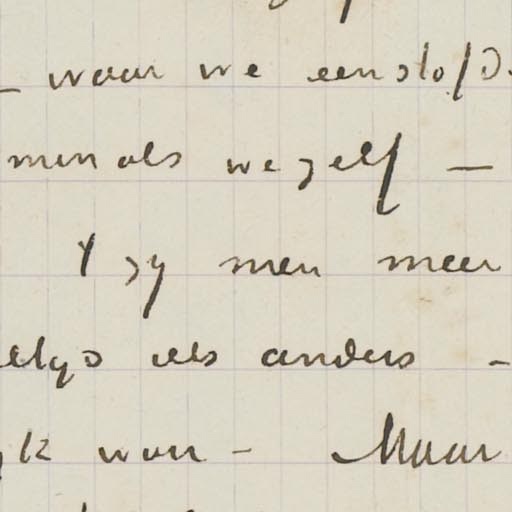 – waar we een slof d
men als we zelf –
't zy men meer
elys als anders –
yk war – Maar